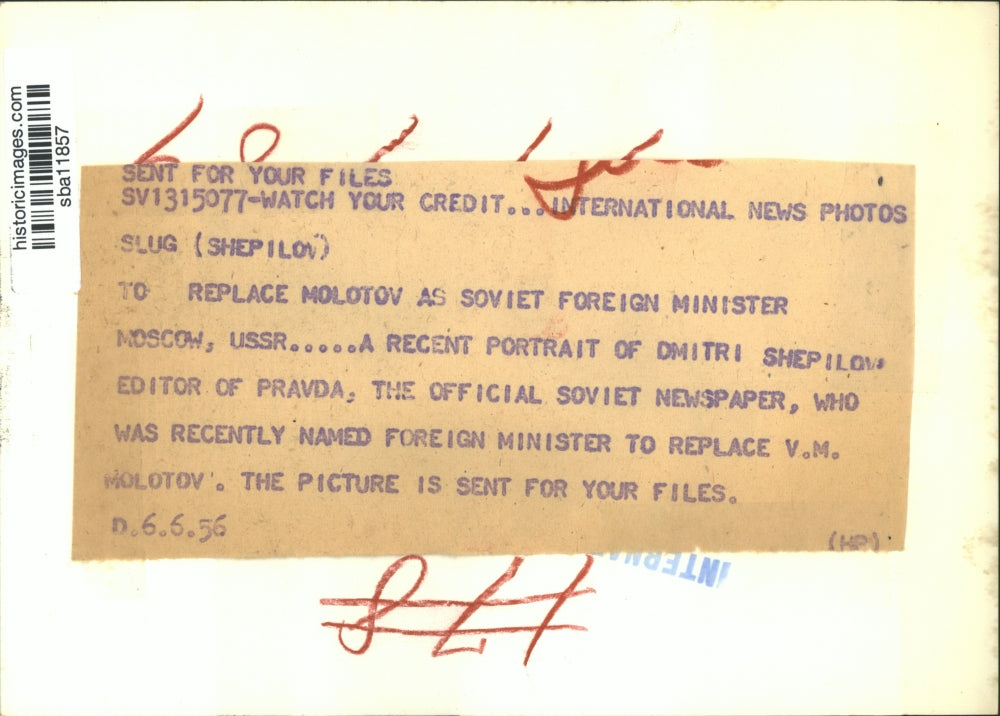 historicimages.com
sba11857
SENT FOR YOUR FILES
SV1315077-WATCH YOUR CREDIT...INTERNATIONAL NEWS PHOTOS
SLUG (SHEPILOV)
TO REPLACE MOLOTOV AS SOVIET FOREIGN MINISTER
MOSCOW, USSR.....A RECENT PORTRAIT OF DMITRI SHEPILOV,
EDITOR OF PRAVDA, THE OFFICIAL SOVIET NEWSPAPER, WHO
WAS RECENTLY NAMED FOREIGN MINISTER TO REPLACE V.M.
MOLOTOV'. THE PICTURE IS SENT FOR YOUR FILES.
D.6.6.56
(HP)
INTERNA